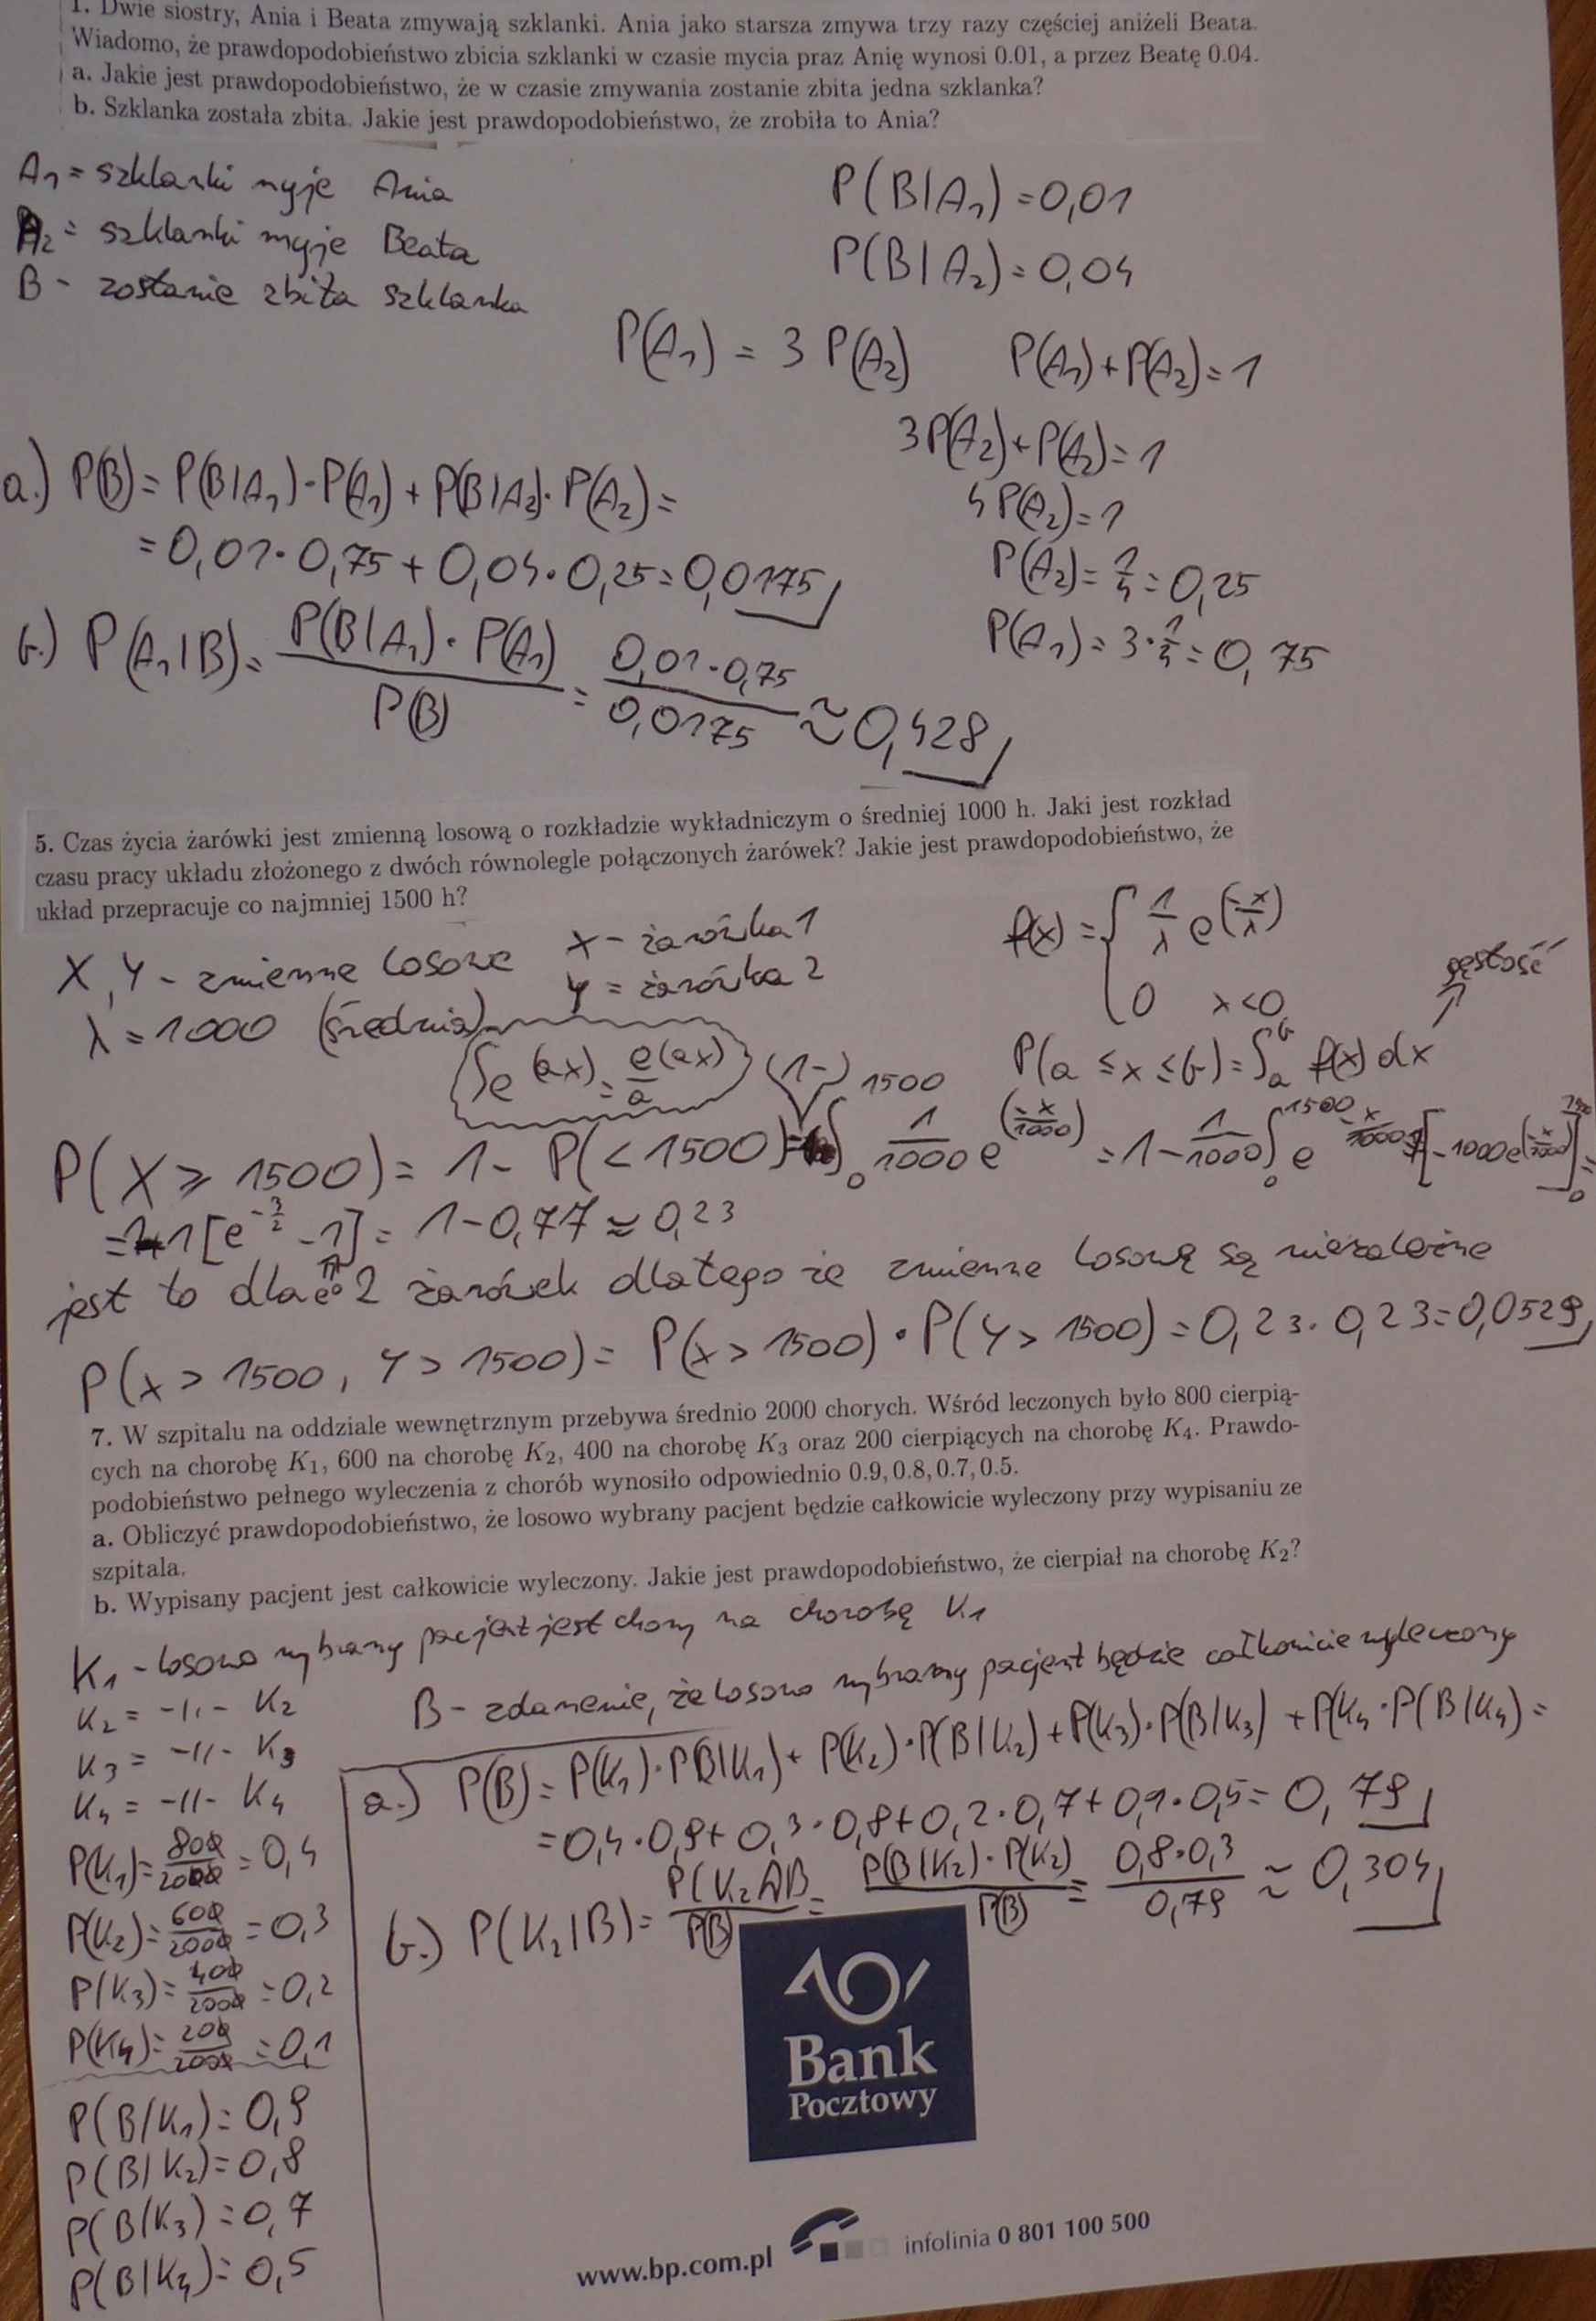 1. Dwie siostry, Ania i Beata zmywają szklanki. Ania jako starsza zmywa trzy razy częściej aniżeli Beata.
Wiadomo, że prawdopodobieństwo zbicia szklanki w czasie mycia praz Anię wynosi 0.01, a przez Beatę 0.04.
a. Jakie jest prawdopodobieństwo, że w czasie zmywania zostanie zbita jedna szklanka?
b. Szklanka została zbita. Jakie jest prawdopodobieństwo, że zrobiła to Ania?
A₁ = szklanki myje Ania
A₂ = szklanki myje Beata
B - zostanie zbita szklanka
P(B|A₁) = 0,01
P(B|A₂) = 0,04
P(A₁) = 3 P(A₂)
P(A₁) + P(A₂) = 1
3P(A₂) + P(A₂) = 1
4P(A₂) = 1
P(A₂) = 1/4 = 0,25
P(A₁) = 3·1/4 = 0,75
a.) P(B) = P(B|A₁)·P(A₁) + P(B|A₂)·P(A₂) =
= 0,01·0,75 + 0,04·0,25 = 0,0175
b.) P(A₁|B) = P(B|A₁)·P(A₁) / P(B) = 0,01·0,75 / 0,0175 ≈ 0,428
5. Czas życia żarówki jest zmienną losową o rozkładzie wykładniczym o średniej 1000 h. Jaki jest rozkład
czasu pracy układu złożonego z dwóch równolegle połączonych żarówek? Jakie jest prawdopodobieństwo, że
układ przepracuje co najmniej 1500 h?
X, Y - zmienne losowe
X - żarówka 1
Y = żarówka 2
λ = 1000 (średnia)
f(x) = { 1/λ e^(-x/λ)
0 x<0
gęstość
∫e^(ax) = e^(ax)/a
(1-)
P(a ≤ x ≤ b) = ∫ₐᵇ f(x) dx
P(X ≥ 1500) = 1 - P(<1500) = ∫₀¹⁵⁰⁰ 1/1000 e^(-x/1000) = 1 - 1/1000 ∫₀¹⁵⁰⁰ e^(-x/1000) = [-1000e^(-x/1000)]₀¹⁵⁰⁰ =
= 1[e^(-3/2) - 1] = 1 - 0,77 ≈ 0,23
e⁰
jest to dla 2 żarówek dlatego że zmienne losowe są niezależne
P(x > 1500, Y > 1500) = P(x > 1500)·P(Y > 1500) = 0,23·0,23 = 0,0529
7. W szpitalu na oddziale wewnętrznym przebywa średnio 2000 chorych. Wśród leczonych było 800 cierpią-
cych na chorobę K₁, 600 na chorobę K₂, 400 na chorobę K₃ oraz 200 cierpiących na chorobę K₄. Prawdo-
podobieństwo pełnego wyleczenia z chorób wynosiło odpowiednio 0.9, 0.8, 0.7, 0.5.
a. Obliczyć prawdopodobieństwo, że losowo wybrany pacjent będzie całkowicie wyleczony przy wypisaniu ze
szpitala.
b. Wypisany pacjent jest całkowicie wyleczony. Jakie jest prawdopodobieństwo, że cierpiał na chorobę K₂?
K₁ - losowo wybrany pacjent jest chory na chorobę K₁
K₂ = -||- K₂
K₃ = -||- K₃
K₄ = -||- K₄
P(K₁) = 800/2000 = 0,4
P(K₂) = 600/2000 = 0,3
P(K₃) = 400/2000 = 0,2
P(K₄) = 200/2000 = 0,1
P(B/K₁) = 0,9
P(B|K₂) = 0,8
P(B|K₃) = 0,7
P(B|K₄) = 0,5
B - zdarzenie, że losowo wybrany pacjent będzie całkowicie wyleczony
a.) P(B) = P(K₁)·P(B|K₁) + P(K₂)·P(B|K₂) + P(K₃)·P(B|K₃) + P(K₄·P(B|K₄) =
= 0,4·0,9 + 0,3·0,8 + 0,2·0,7 + 0,1·0,5 = 0,79
b.) P(K₂|B) = P(K₂∩B / P(B) = P(B|K₂)·P(K₂) / P(B) = 0,8·0,3 / 0,79 ≈ 0,304
Bank
Pocztowy
www.bp.com.pl
infolinia 0 801 100 500